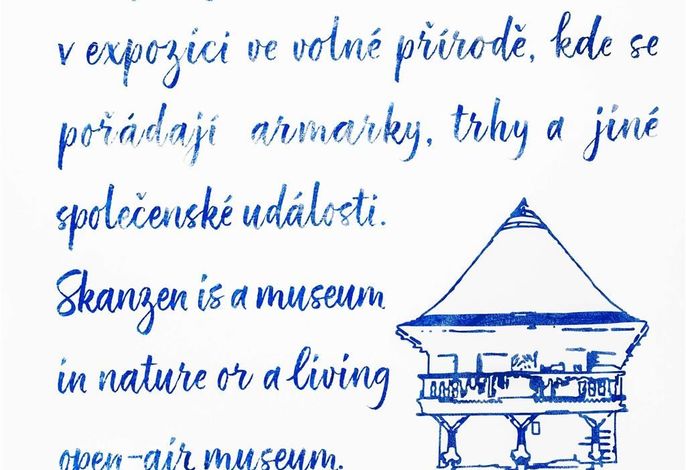 v expozici ve volné přírodě, kde se
pořádají armarky, trhy a jiné
společenské události.
Skanzen is a museum
in nature or a living
open-air museum.